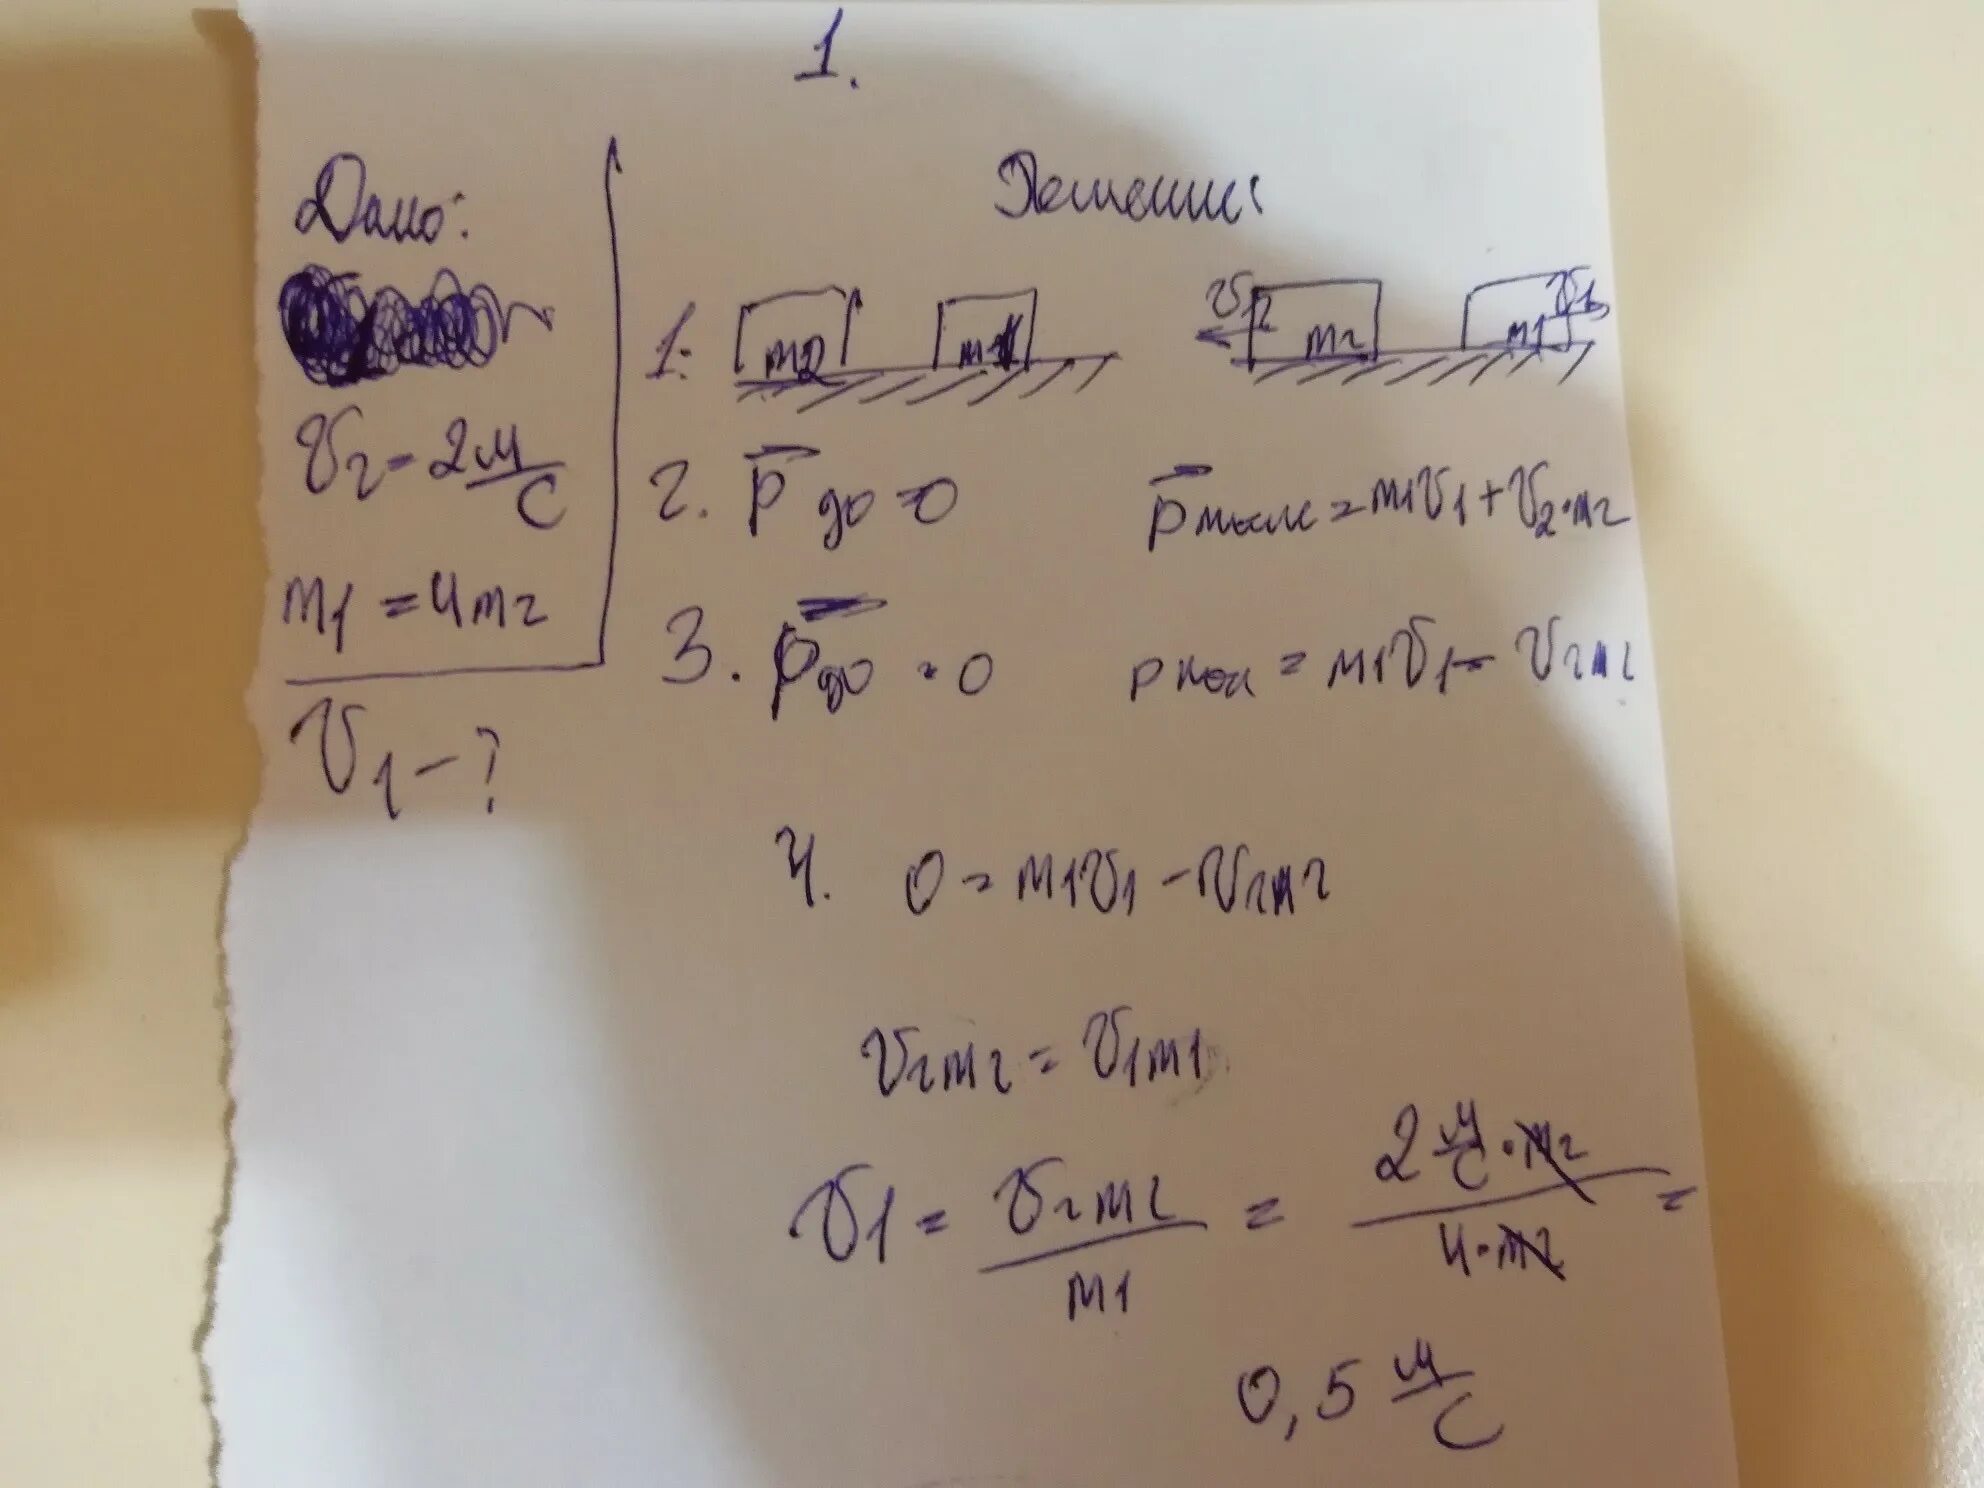 1.
Дано:
v2 = 2 м/с
m1 = 4m2
v1 - ?
Решение:
1. m2 m1 v2 m2 m1 v1
2. p до = 0 p = m1v1 + v2·m2
3. p до = 0 p = m1v1 - v2m2
4. 0 = m1v1 - v2m2
v2m2 = v1m1
v1 = v2m2/m1 = 2 м/с · m2/4·m2 =
0,5 м/с